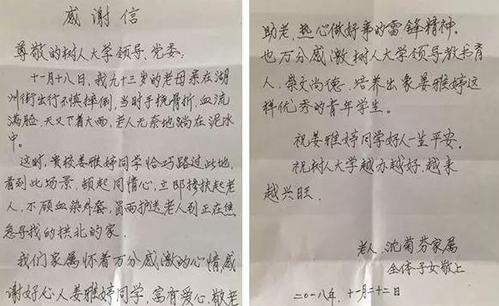 感谢信
尊敬的树人大学领导、党委:
十一月十八日,我九十三岁的老母亲在湖
州街出行不慎摔倒,当时手挽骨折,血流
满脸,天又下着大雨,老人无奈地躺在泥水
中。
这时,贵校姜雅婷同学恰巧路过此地,
看到此场景,顿起同情心,立即搀扶起老
人,不顾血染外套,冒雨护送老人到正在焦
急寻我的拱北的家。
我们家属怀着万分感激的心情感
谢好心人姜雅婷同学,富有爱心,敬老
助老,热心做好事的雷锋精神。
也万分感激树人大学领导教书育
人,崇文尚德,培养出象姜雅婷这
样优秀的青年学生。
祝姜雅婷同学好人一生平安。
祝树人大学越办越好,越来
越兴旺。
老人:沈菊芬家属
全体子女敬上
二〇一八年十一月二十二日